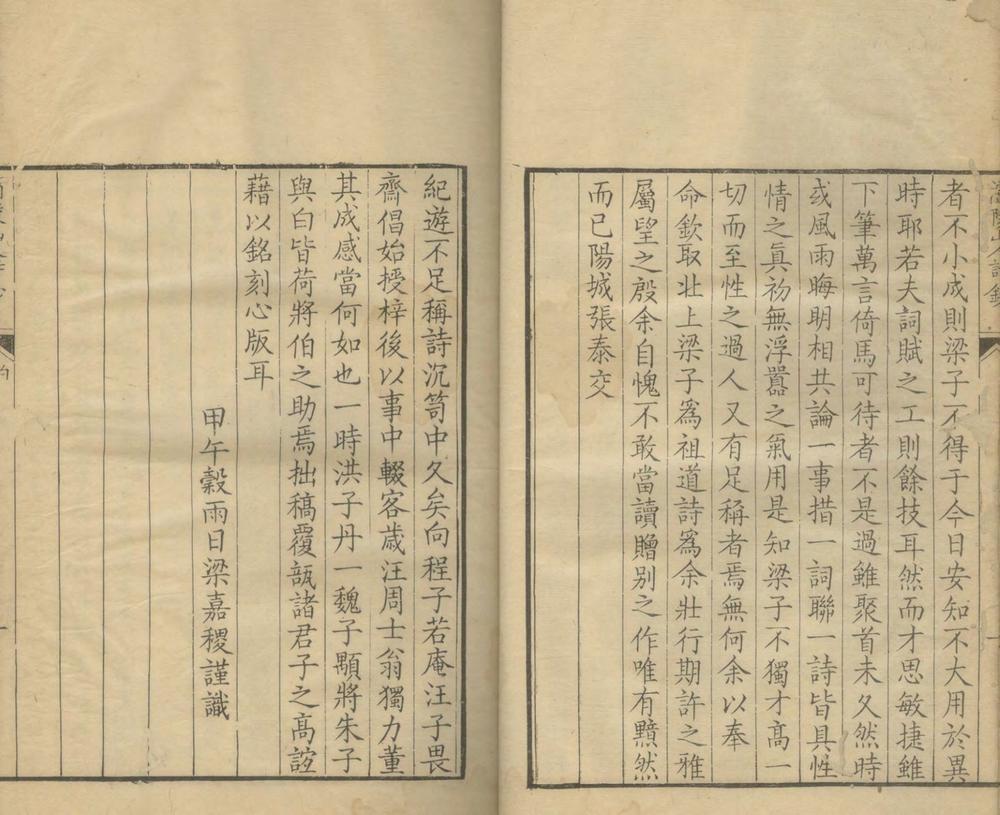 者不小成則梁子不得于今日安知不大用於異
時耶若夫詞賦之工則餘技耳然而才思敏捷雖
下筆萬言倚馬可待者不是過雖聚首未久然時
或風雨晦明相共論一事措一詞聯一詩皆具性
情之真初無浮囂之氣用是知梁子不獨才高一
切而至性之過人又有足稱者焉無何余以奉
命欽取北上梁子為祖道詩為余壯行期許之雅
屬望之殷余自愧不敢當讀贈别之作唯有黯然
而已陽城張泰交
紀遊不足稱詩沉笥中久矣向程子若庵汪子畏
齋倡始授梓後以事中輟客歲汪周士翁獨力董
其成感當何如也一時洪子丹一魏子顒將朱子
與白皆荷將伯之助焉拙稿覆瓿諸君子之高誼
藉以銘刻心版耳
甲午穀雨日梁嘉稷謹識